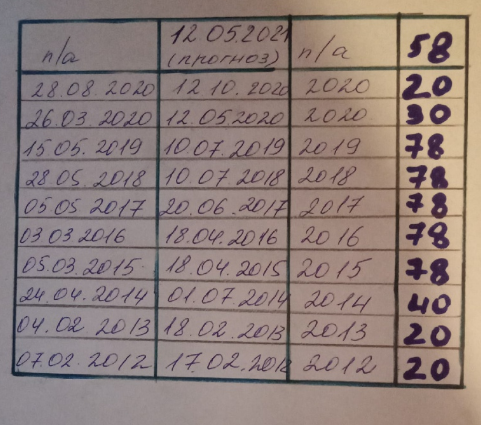 n/a 12.05.2021 (прогноз) n/a 58
28.08 2020 12 10. 2020 2020 20
26.03. 2020 12.05 2020 2020 30
15.05. 2019 10.07. 2019 2019 78
28 05. 2018 10.07. 2018 2018 78
05 05 2017 20.06. 2017 2017 78
03 03 2016 18.04. 2016 2016 78
05.03. 2015 18.04. 2015 2015 78
24.04. 2014 01.07. 2014 2014 40
04. 02. 2013 18.02. 2013 2013 20
07.02. 2012 17.02. 2012 2012 20